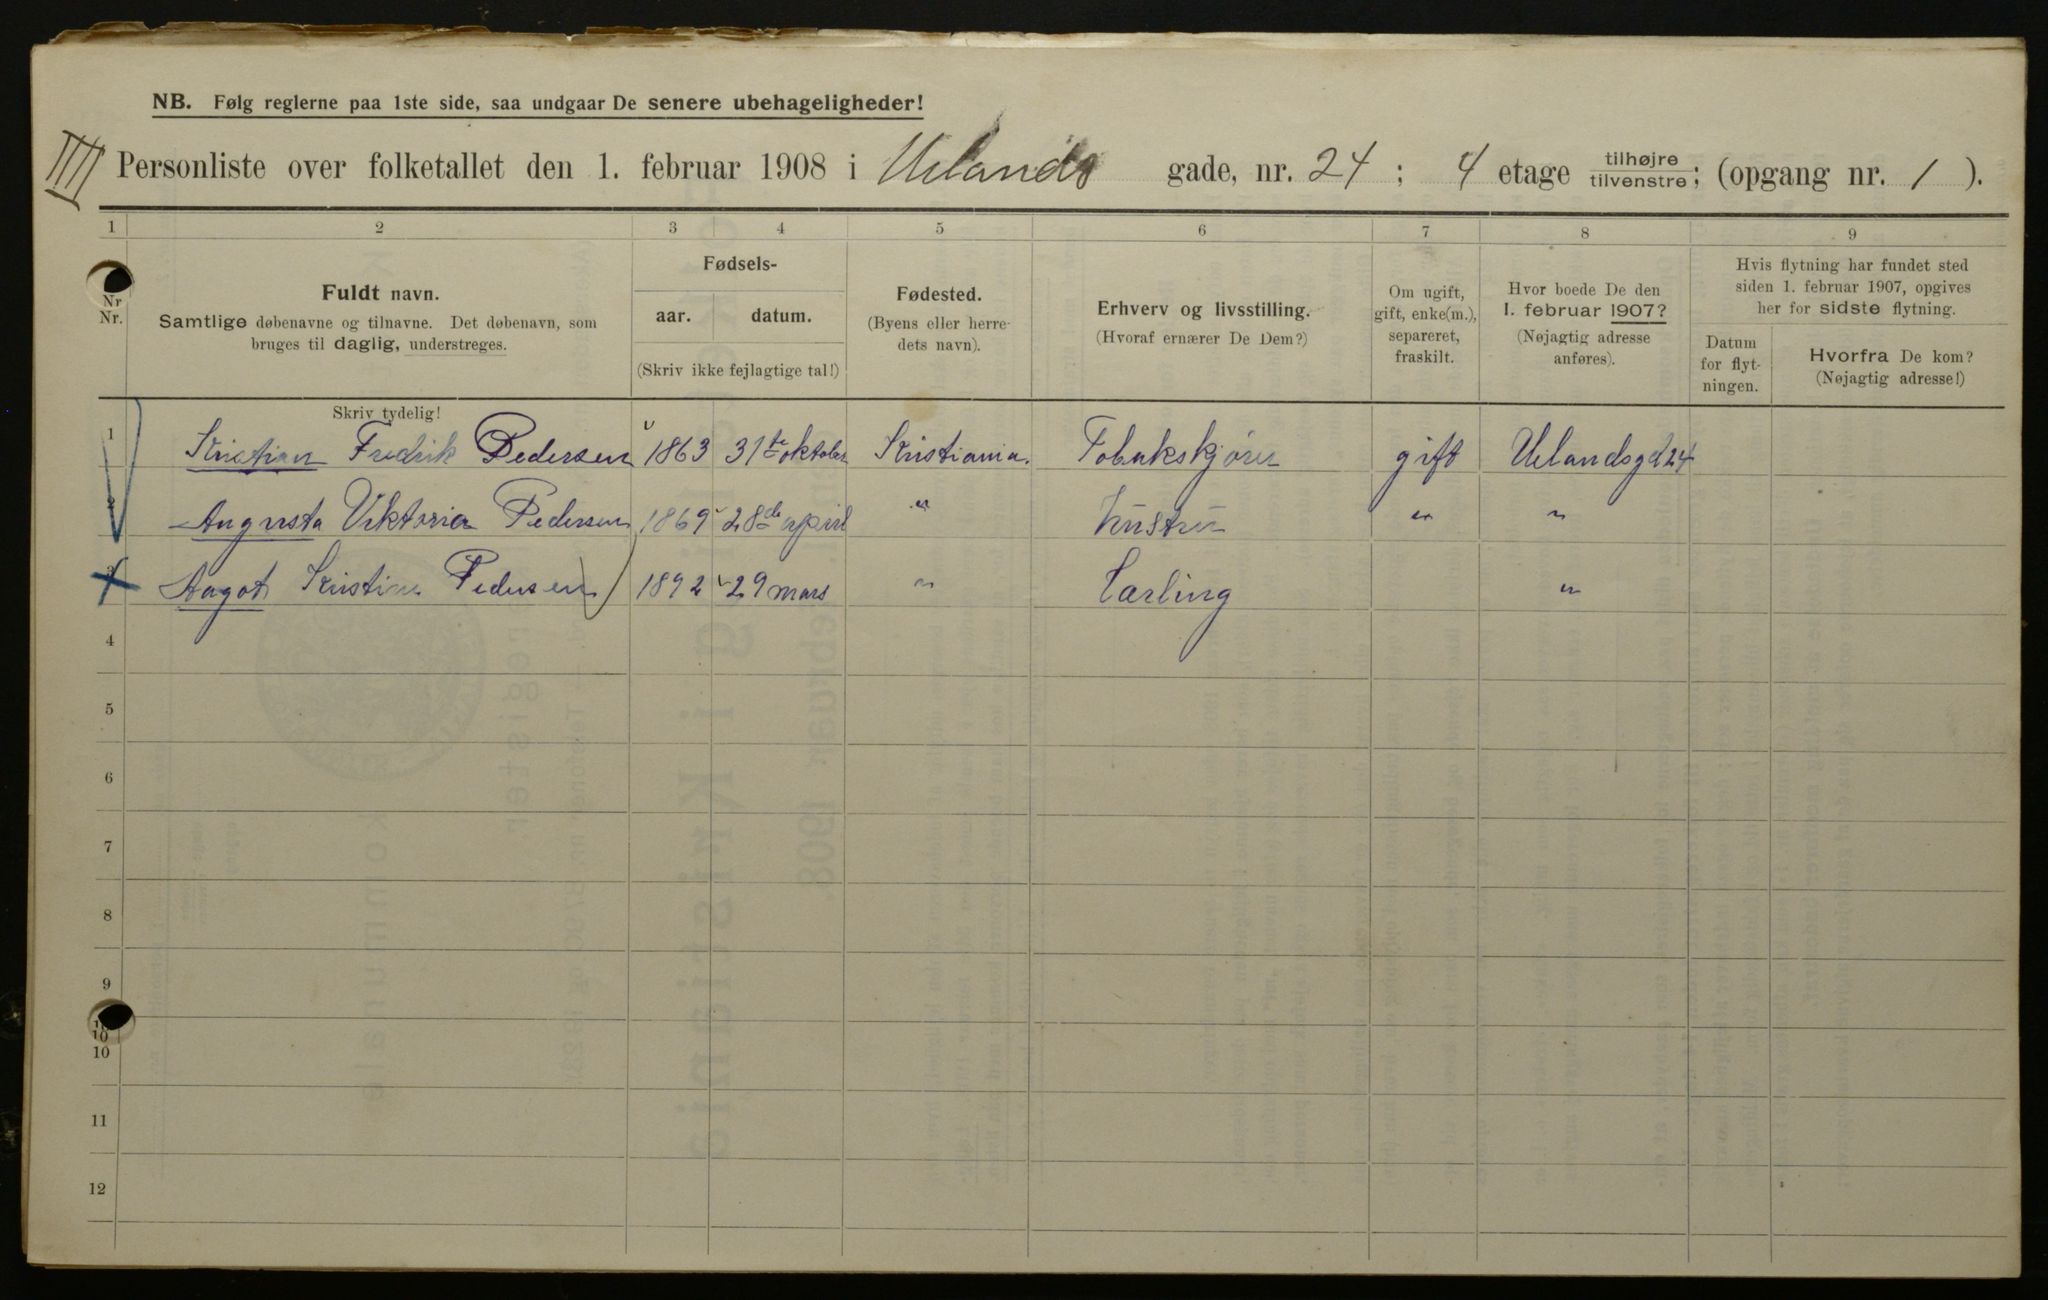 NB. Følg reglerne paa 1ste side, saa undgaar De senere ubehageligheder!
IIII Personliste over folketallet den 1. februar 1908 i Uelands gade, nr. 24 ; 4 etage tilhøjre/tilvenstre; (opgang nr. 1 ).
1 2 3 4 5 6 7 8 9
Nr Nr.
Fuldt navn.
Samtlige døbenavne og tilnavne. Det døbenavn, som
bruges til daglig, understreges.
Skriv tydelig!
Fødsels-
aar. datum.
(Skriv ikke fejlagtige tal!)
Fødested.
(Byens eller herre-
dets navn).
Erhverv og livsstilling.
(Hvoraf ernærer De Dem?)
Om ugift,
gift, enke(m.),
separeret,
fraskilt.
Hvor boede De den
1. februar 1907?
(Nøjagtig adresse
anføres).
Hvis flytning har fundet sted
siden 1. februar 1907, opgives
her for sidste flytning.
Datum
for flyt-
ningen.
Hvorfra De kom?
(Nøjagtig adresse!)
1 Kristian Fredrik Pedersen 1863 31te oktober Kristiania. Tobakskjører gift Uelandsgd 24
2 Augusta Viktoria Pedersen 1869 28de april " Hustru " "
3 Aagot Kristine Pedersen 1892 29 mars " Lærling "
4
5
6
7
8
9
10
10
11
12